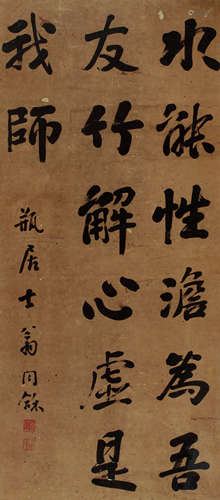 水能性澹為吾
友竹解心虛是
我師
瓶居士翁同龢